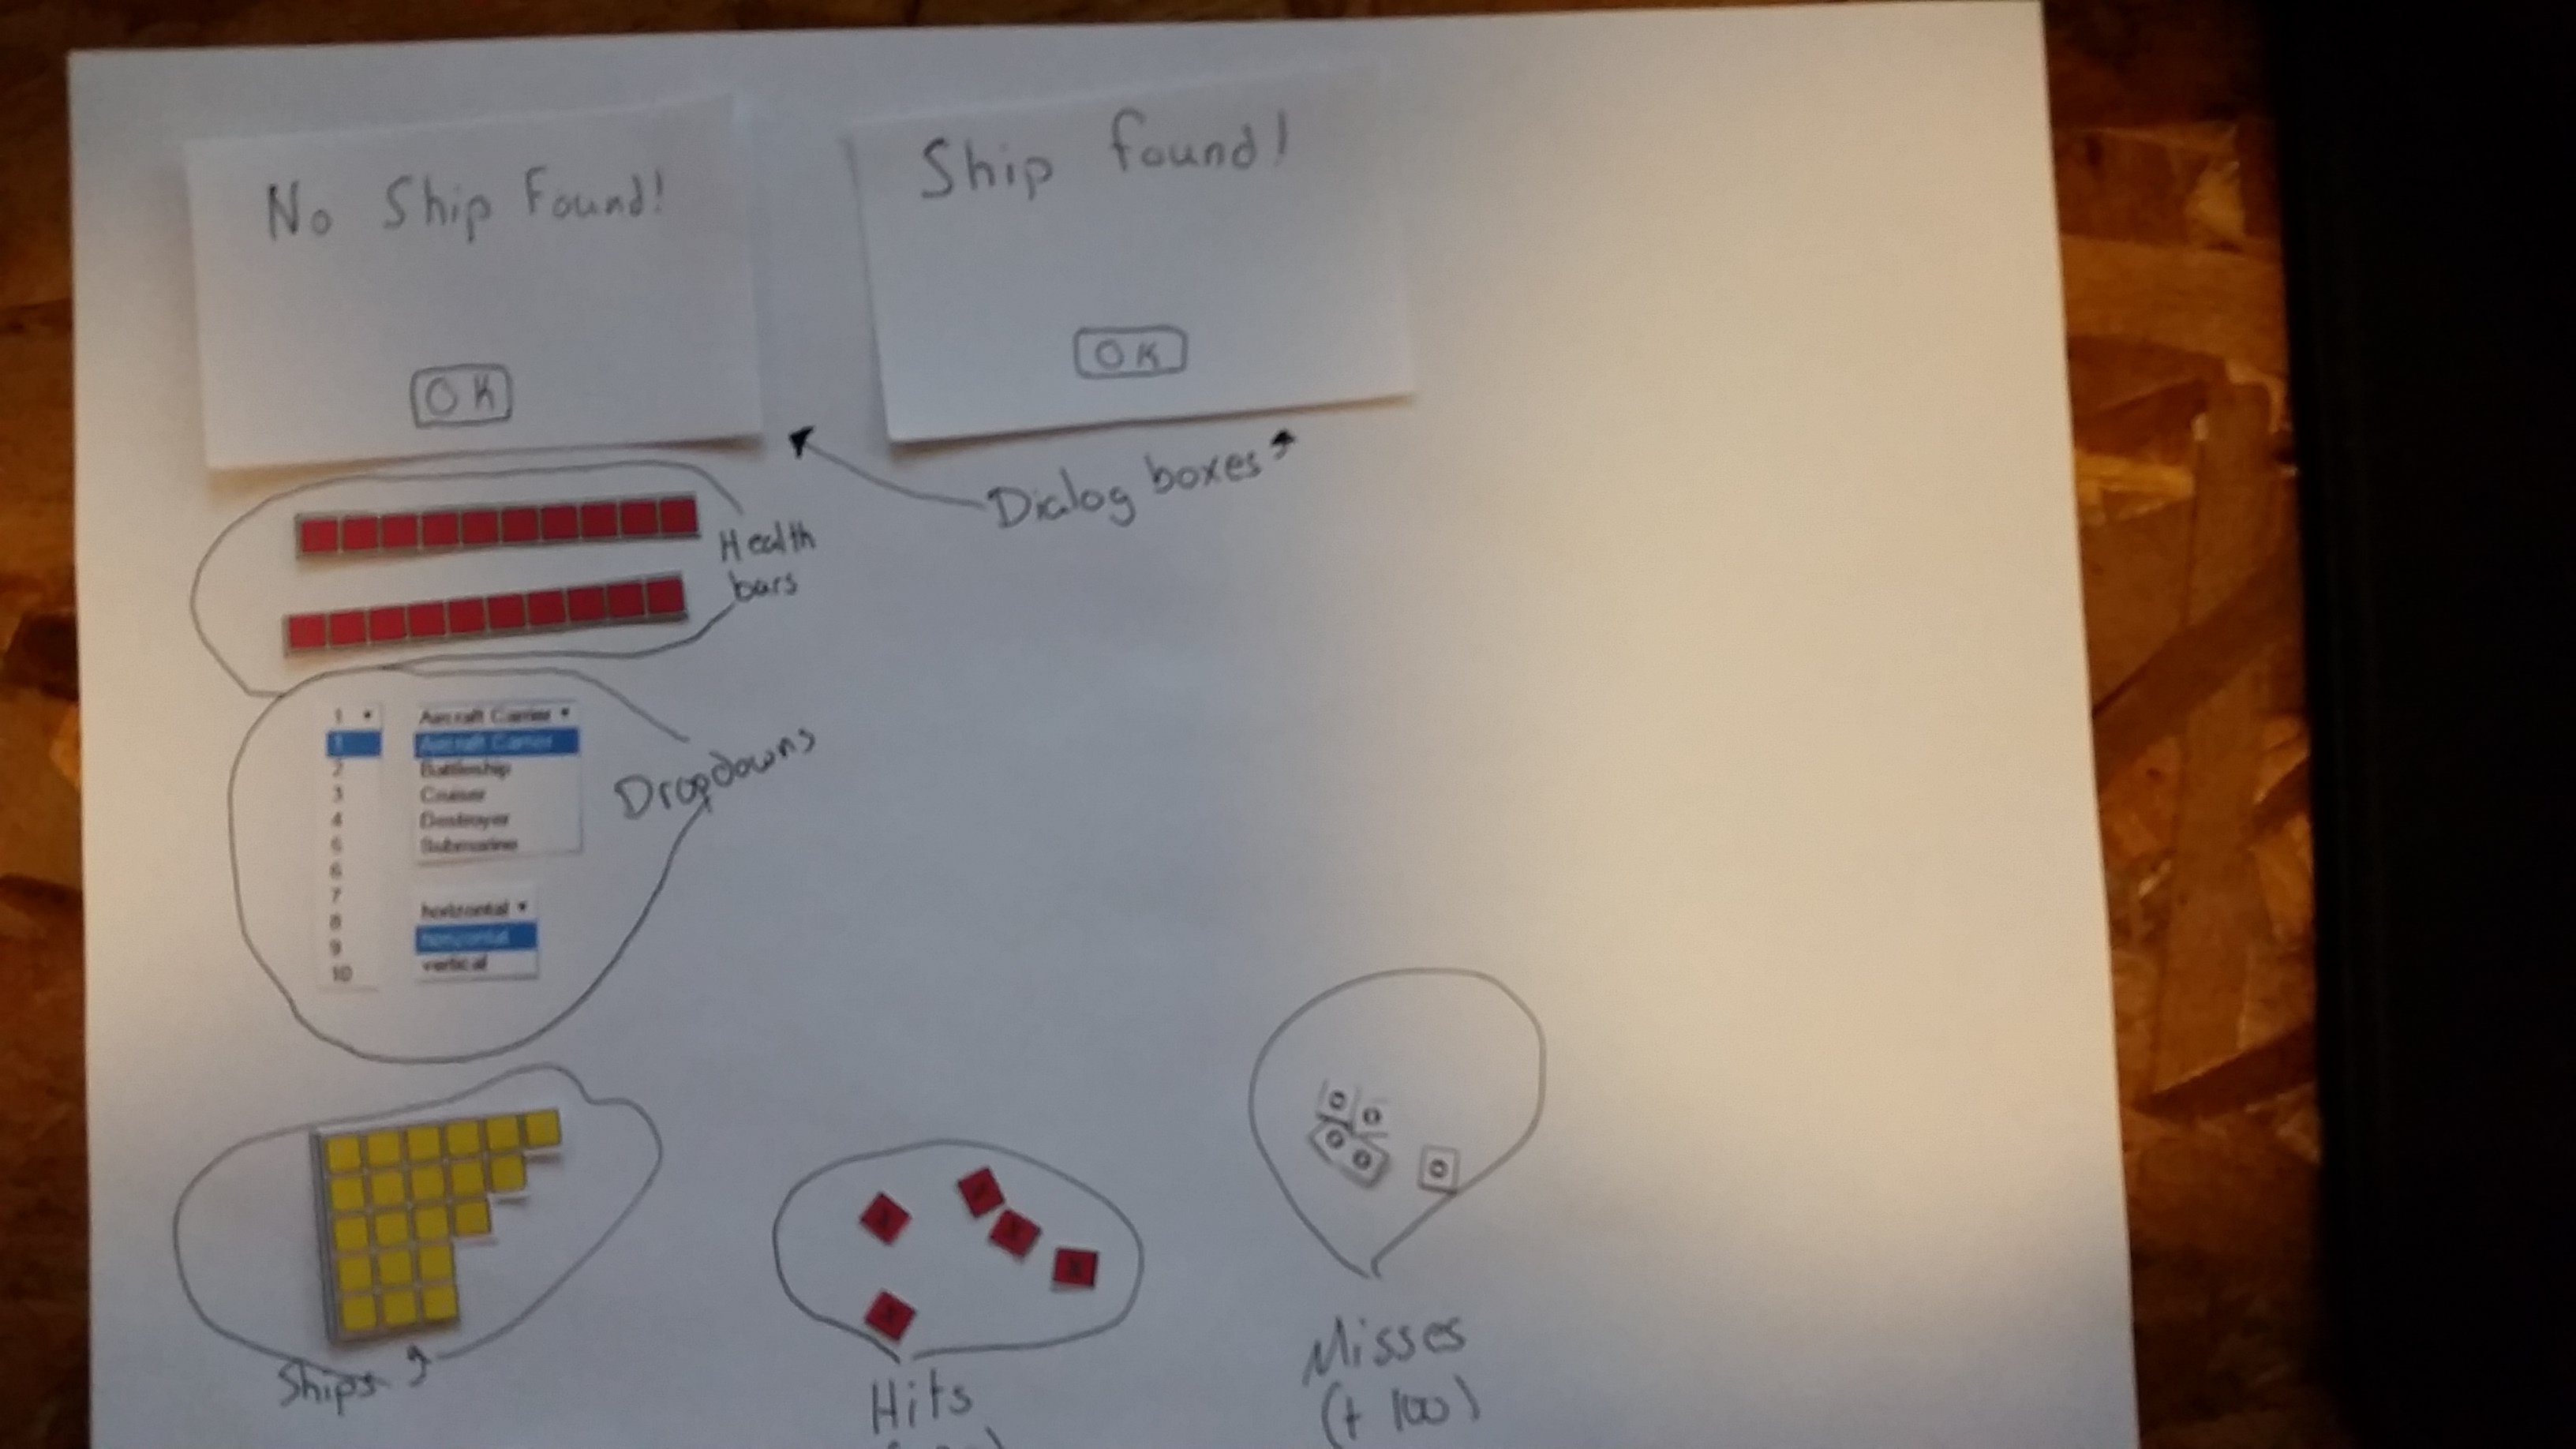 No Ship Found!
OK
Ship found!
OK
Dialog boxes
Health
bars
1
1
2
3
4
5
6
7
8
9
10
Aircraft Carrier
Aircraft Carrier
Battleship
Cruiser
Destroyer
Submarine
horizontal
horizontal
vertical
Dropdowns
Ships
x
x
x
x
x
Hits
O
O
O
O
O
Misses
(+ 100)